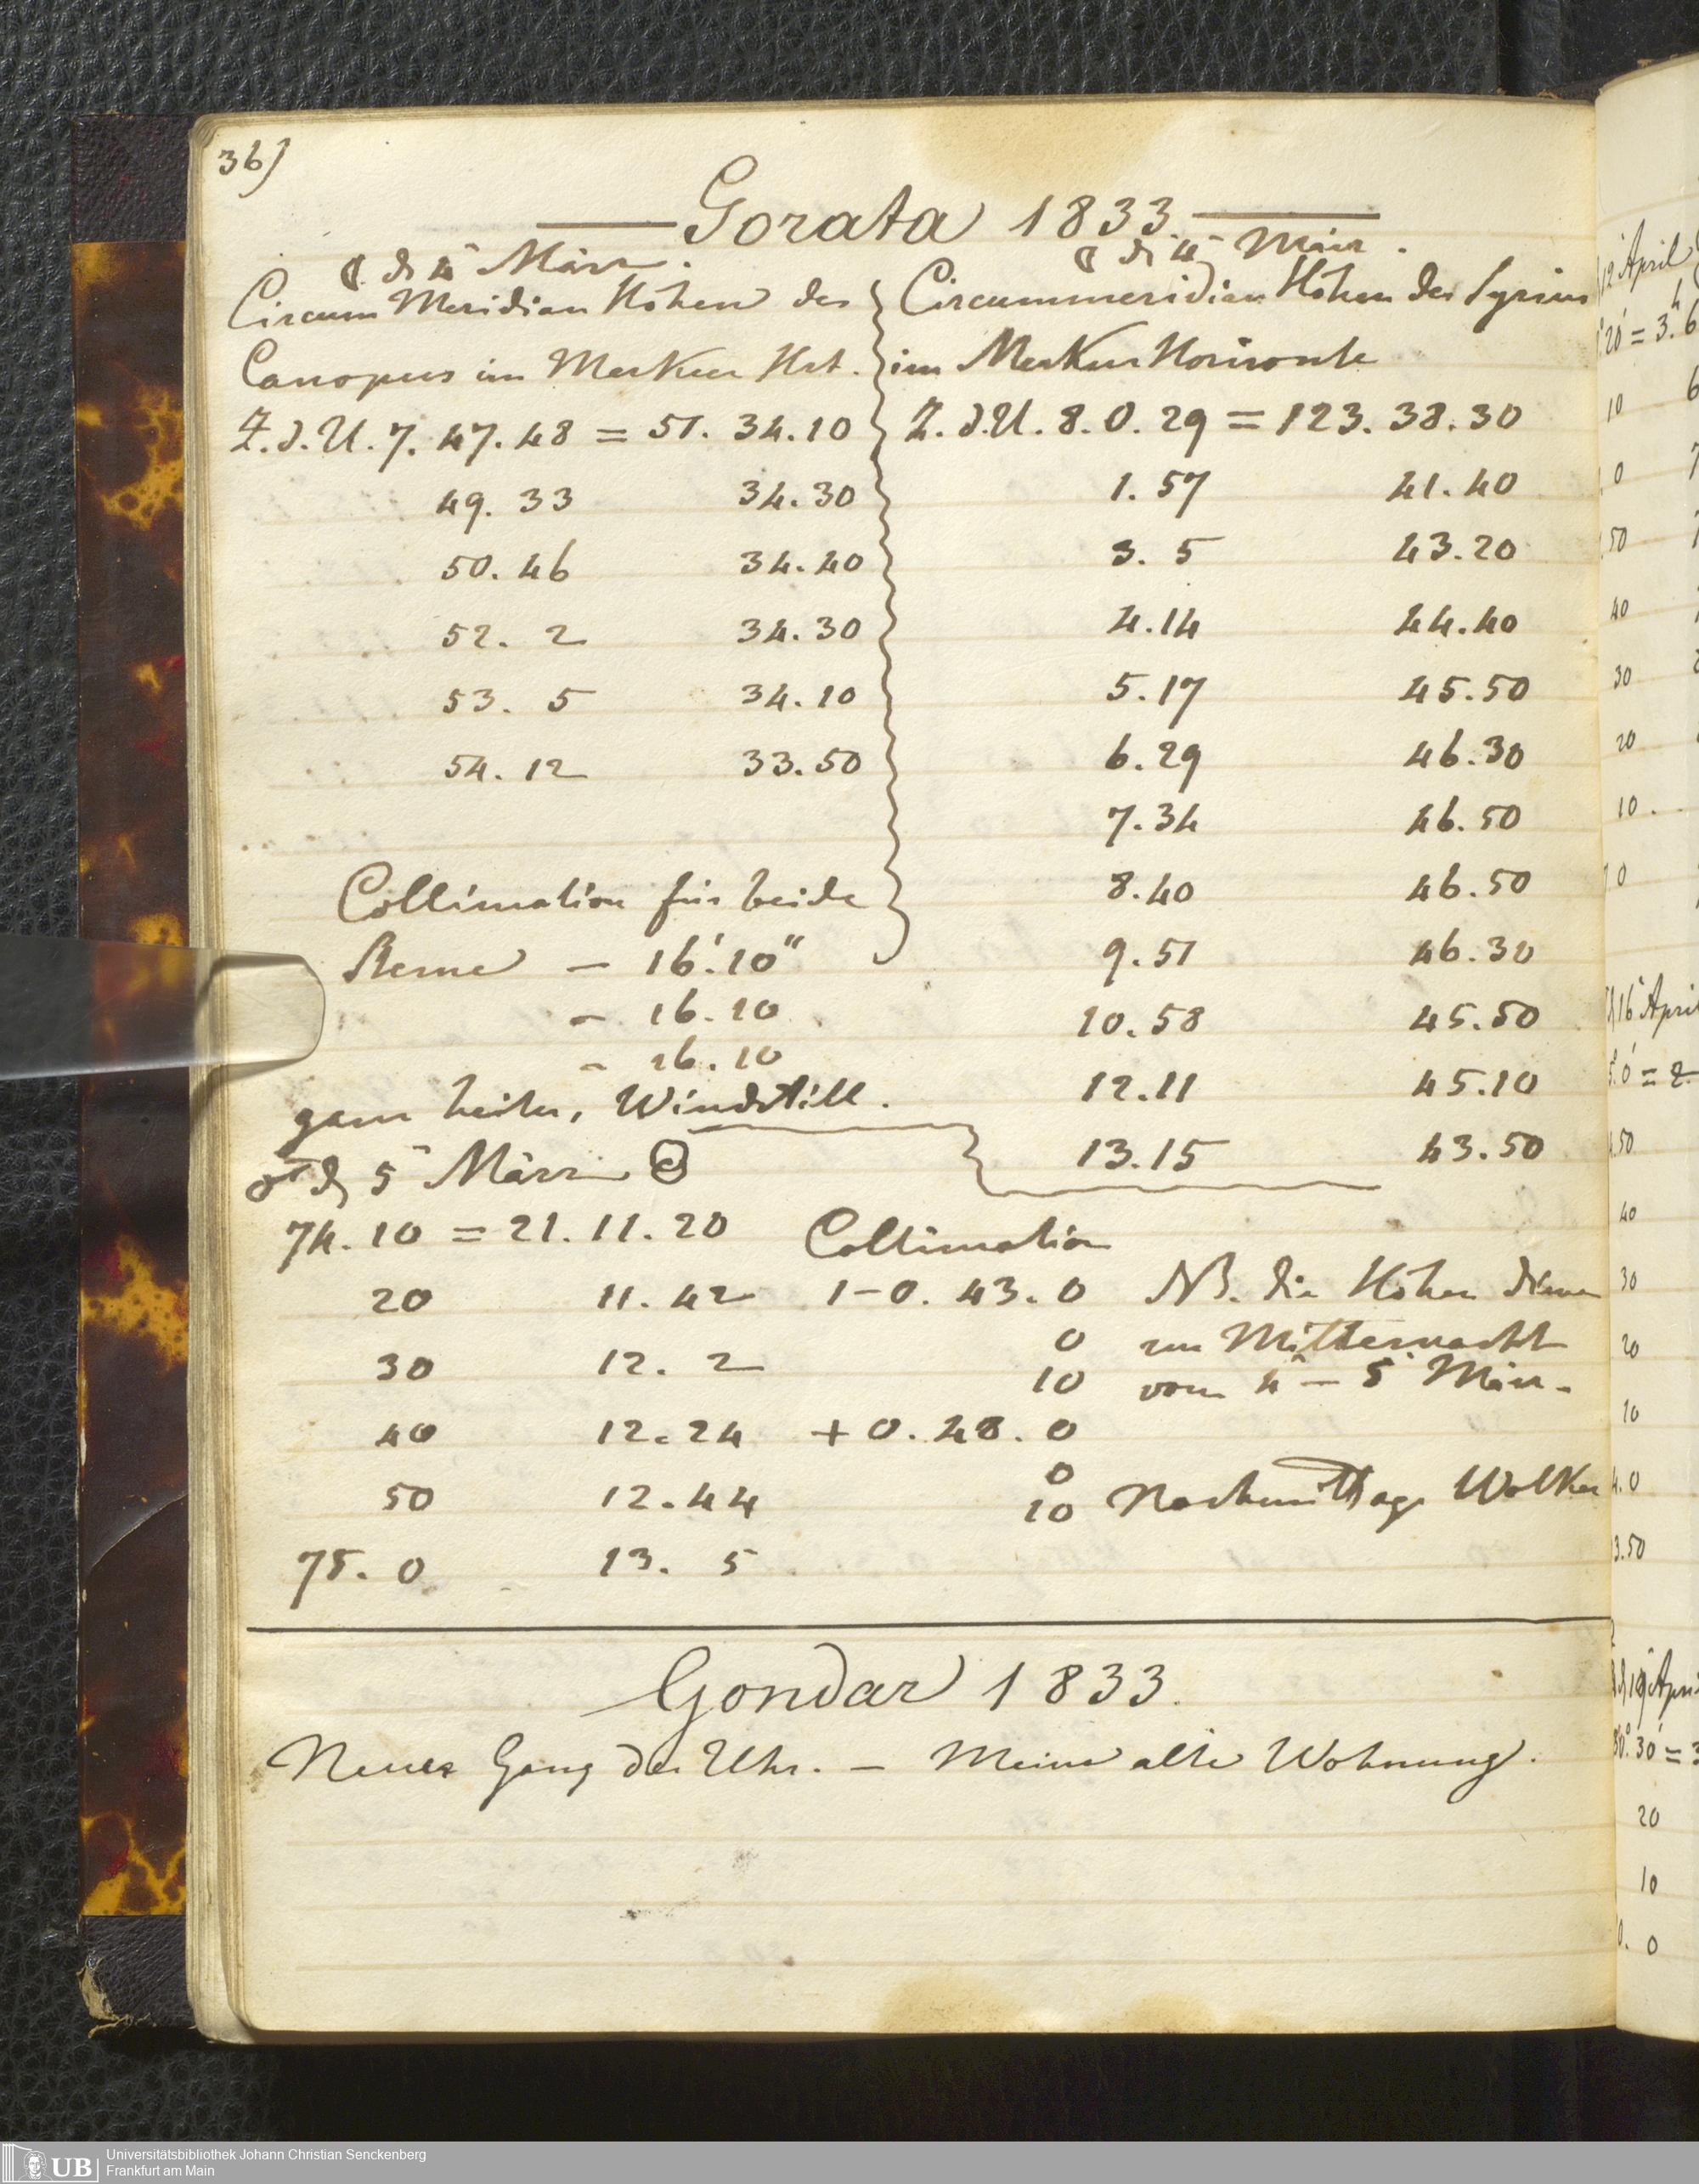 36)
Gorata 1833.
☾ d 4ᵗ März.
Circum Meridian Höhen des
Canopus im Merkur Hrt.
Z.d.U. 7. 47. 48 = 51. 34. 10
49. 33 34. 30
50. 46 34. 40
52. 2 34. 30
53. 5 34. 10
54. 12 33. 50
Collimation für beide
Sterne – 16'. 10"
– 16. 10
– 16. 10
ganz heiter, Windstill.
☾ d 4ᵗ März.
Circummeridian Höhen des Syrius
im Merkur Horizonte
Z.d.U. 8. 0. 29 = 123. 38. 30
1. 57 41. 40
3. 5 43. 20
4. 14 44. 40
5. 17 45. 50
6. 29 46. 30
7. 34 46. 50
8. 40 46. 50
9. 51 46. 30
10. 58 45. 50
12. 11 45. 10
13. 15 43. 50
♂ d 5ᵗ März
74. 10 = 21. 11. 20
20 11. 42
30 12. 2
40 12. 24
50 12. 44
75. 0 13. 5
Collimation
1 – 0. 43. 0
0
10
+ 0. 28. 0
0
10
NB. die Höhen dienen
zur Mitternacht
vom 4ᵗ – 5ᵗ März.
Nachmittags Wolken
Gondar 1833.
Neuer Gang der Uhr. – Meine alte Wohnung.
12 April
20' = 3.ʰ 6
10 6
0 7
50
40
30
20
10.
0
16 April
0' = 2
50
40
30
20
10
4. 0
3. 50
19 April
30°. 30' = 3
20
10
0. 0
UB
Universitätsbibliothek Johann Christian Senckenberg
Frankfurt am Main